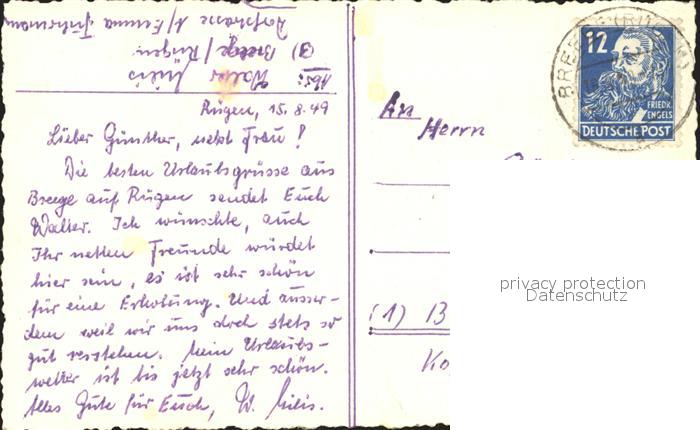 Abs.: Walter Milis
3) Breege / Rügen
Dorfstrasse b/ Emma
Rügen, 15.8.49
Lieber Günther, nebst Frau!
Die besten Urlaubsgrüsse aus
Breege auf Rügen sendet Euch
Walter. Ich wünschte, auch
Ihr netten Freunde würdet
hier sein, es ist sehr schön
für eine Erholung. Und ausser-
dem weil wir uns doch stets so
gut verstehen. Mein Urlaubs-
wetter ist bis jetzt sehr schön.
Alles Gute für Euch, W. Milis.
An
Herrn
(1) B
Ko
BREEGE (RÜGEN)
12
FRIEDR.
ENGELS
DEUTSCHE POST
privacy protection
Datenschutz